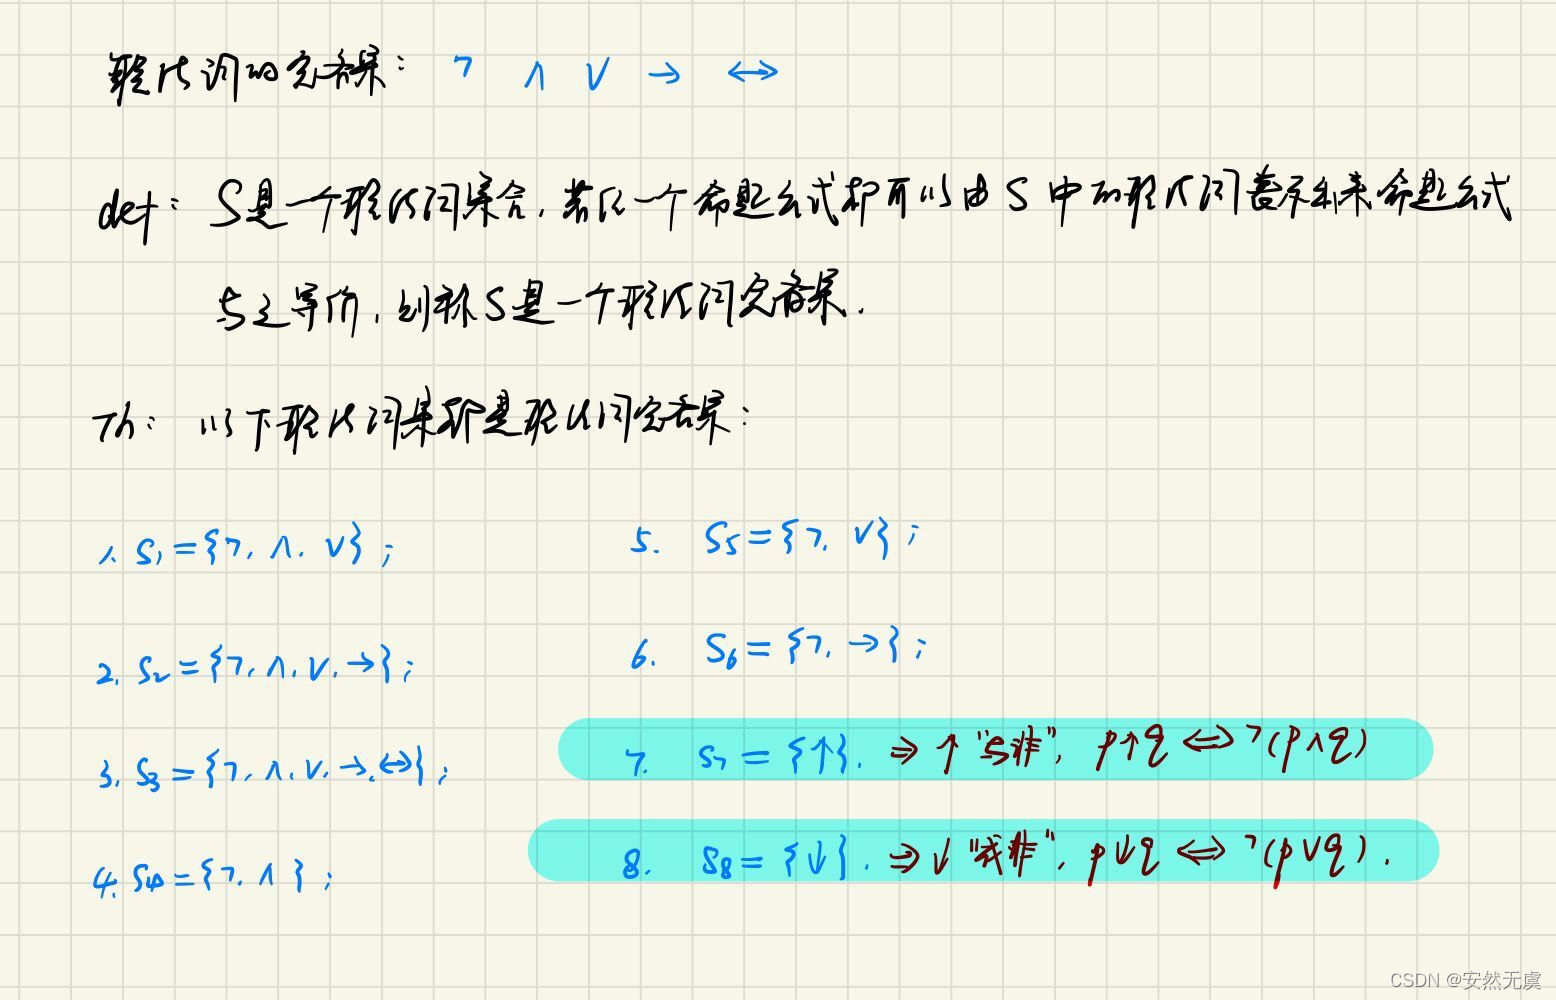 联结词的完备集： ¬ ∧ ∨ → ↔
def： S是一个联结词集合，若任一个命题公式都可以由 S 中的联结词表示出来命题公式
与之等价，则称S是一个联结词完备集.
Th： 以下联结词集都是联结词完备集：
1. S₁={¬, ∧, ∨}；
2. S₂={¬, ∧, ∨, →}；
3. S₃={¬, ∧, ∨, →, ↔}；
4. S₄={¬, ∧}；
5. S₅={¬, ∨}；
6. S₆={¬, →}；
7. S₇={↑}. ⇒ ↑ "与非"， p↑q ⇔ ¬(p∧q)
8. S₈={↓}. ⇒ ↓ "或非"， p↓q ⇔ ¬(p∨q).
CSDN @安然无虞